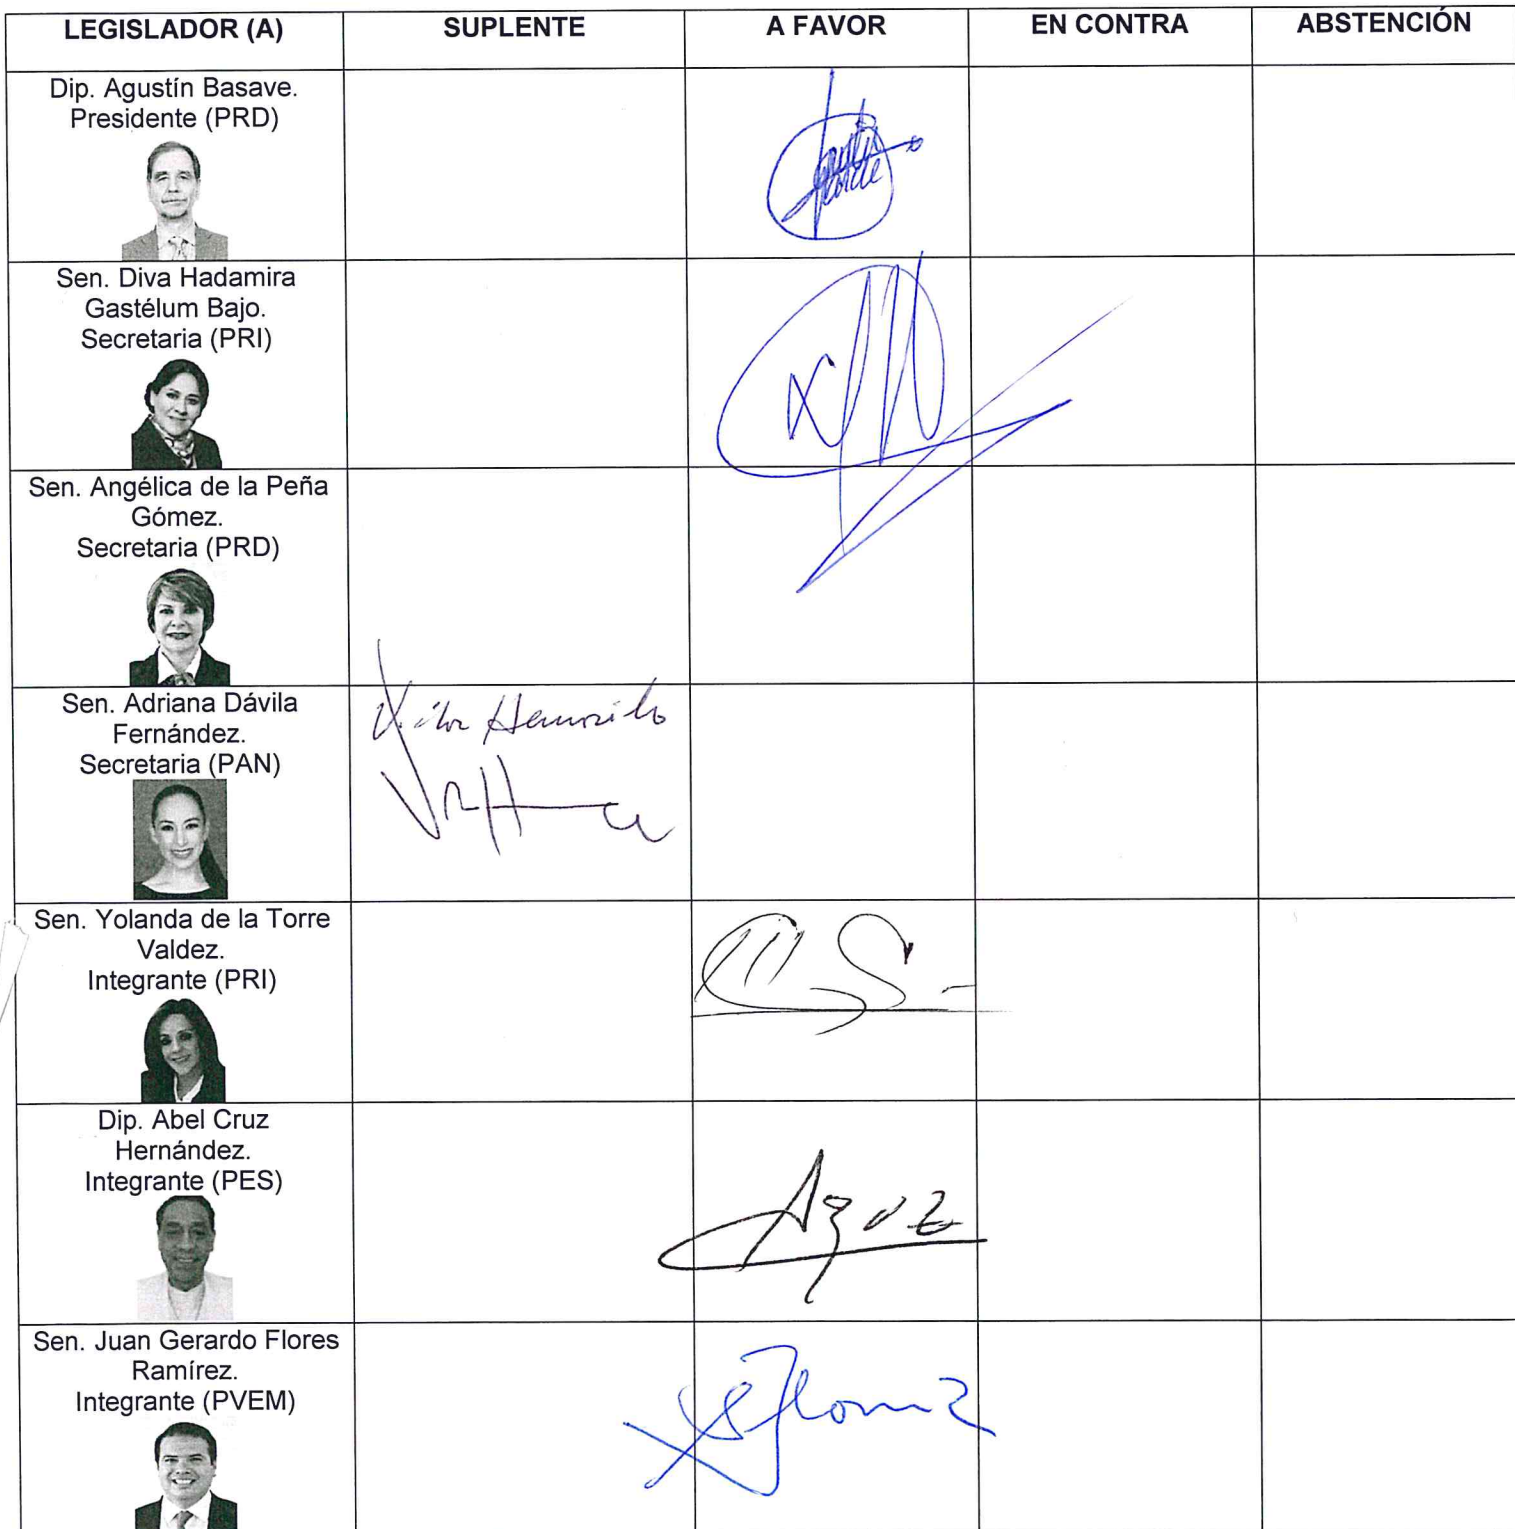 LEGISLADOR (A) SUPLENTE A FAVOR EN CONTRA ABSTENCIÓN
Dip. Agustín Basave.
Presidente (PRD)
Sen. Diva Hadamira
Gastélum Bajo.
Secretaria (PRI)
Sen. Angélica de la Peña
Gómez.
Secretaria (PRD)
Sen. Adriana Dávila
Fernández.
Secretaria (PAN)
Sen. Yolanda de la Torre
Valdez.
Integrante (PRI)
Dip. Abel Cruz
Hernández.
Integrante (PES)
Sen. Juan Gerardo Flores
Ramírez.
Integrante (PVEM)